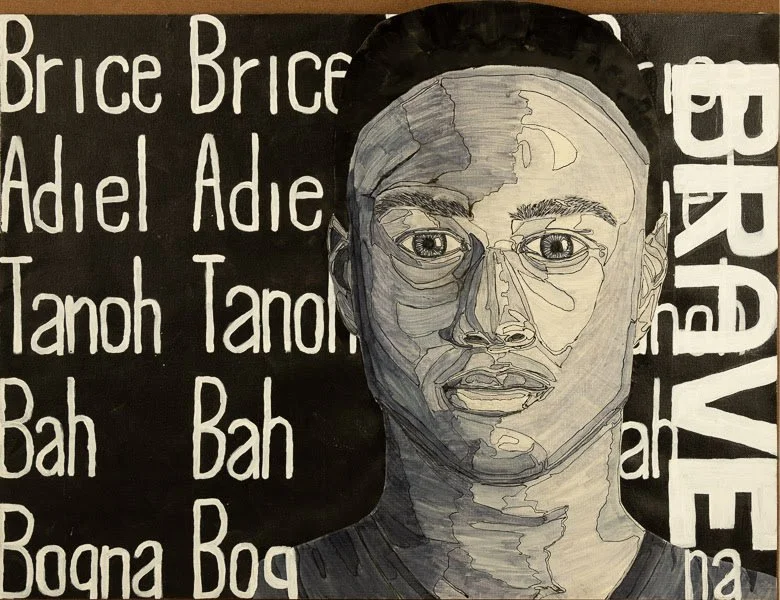 Brice Brice
Adiel Adie
Tanoh Tanoh
Bah Bah ah
Bogna Bog na
BRAVE